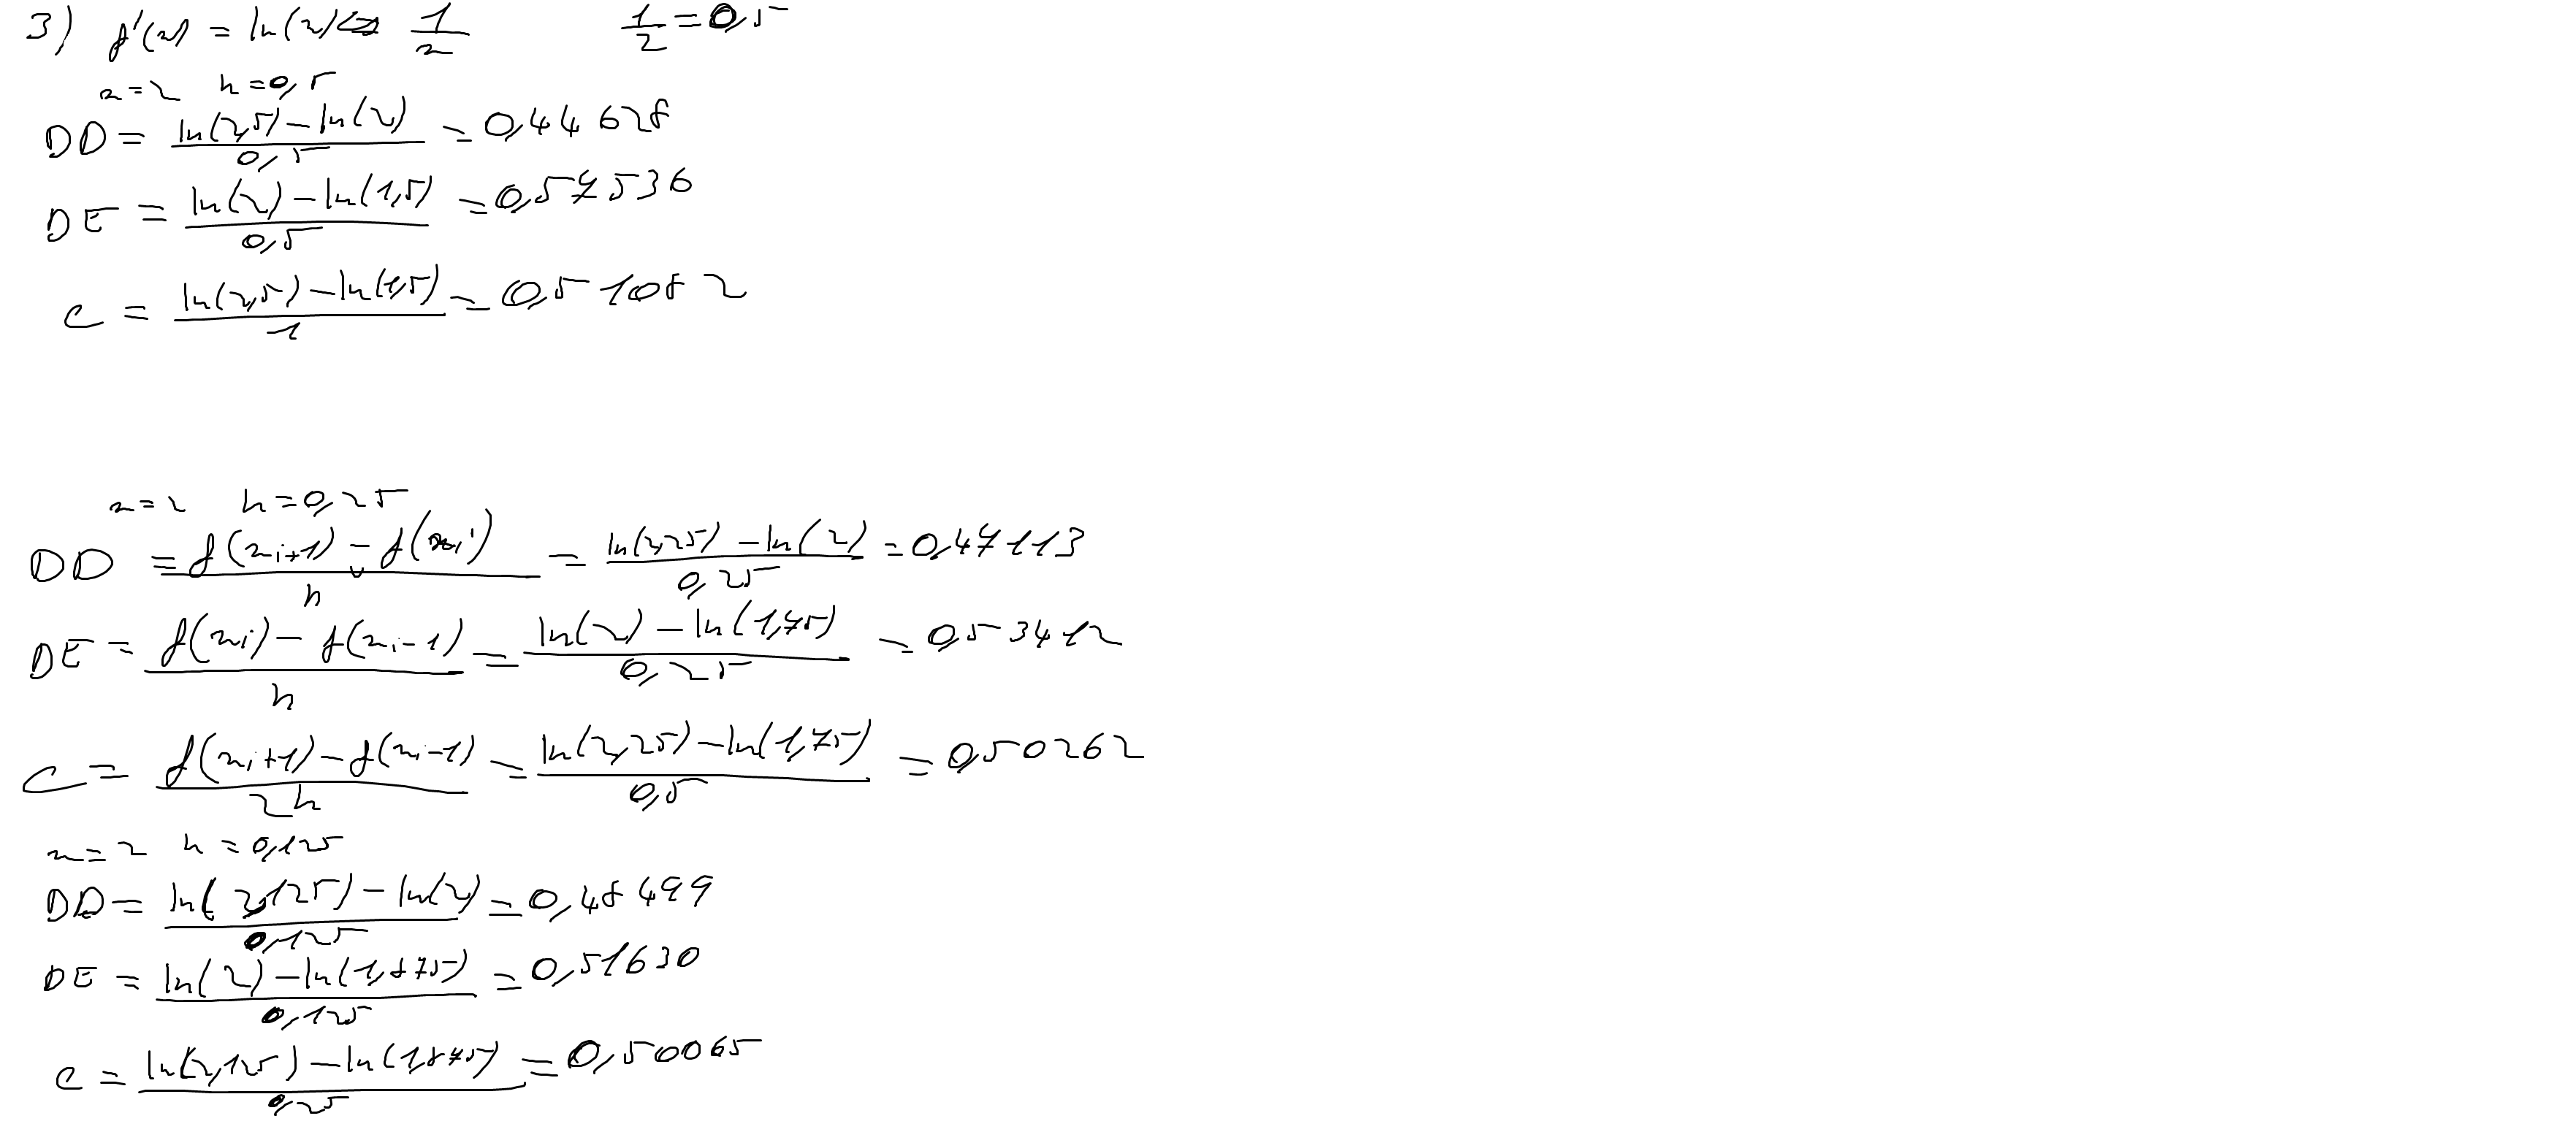 3) f'(x) = ln(x) <=> 1/x 1/2 = 0,5
x=2 h=0,5
DD = (ln(2,5) - ln(2))/0,5 = 0,44628
DE = (ln(2) - ln(1,5))/0,5 = 0,57536
C = (ln(2,5) - ln(1,5))/1 = 0,51082
x=2 h=0,25
DD = (f(xi+1) - f(xi))/h = (ln(2,25) - ln(2))/0,25 = 0,47113
DE = (f(xi) - f(xi-1))/h = (ln(2) - ln(1,75))/0,25 = 0,53412
C = (f(xi+1) - f(xi-1))/2h = (ln(2,25) - ln(1,75))/0,5 = 0,50262
x=2 h=0,125
DD = (ln(2,125) - ln(2))/0,125 = 0,48499
DE = (ln(2) - ln(1,875))/0,125 = 0,51630
C = (ln(2,125) - ln(1,875))/0,25 = 0,50065